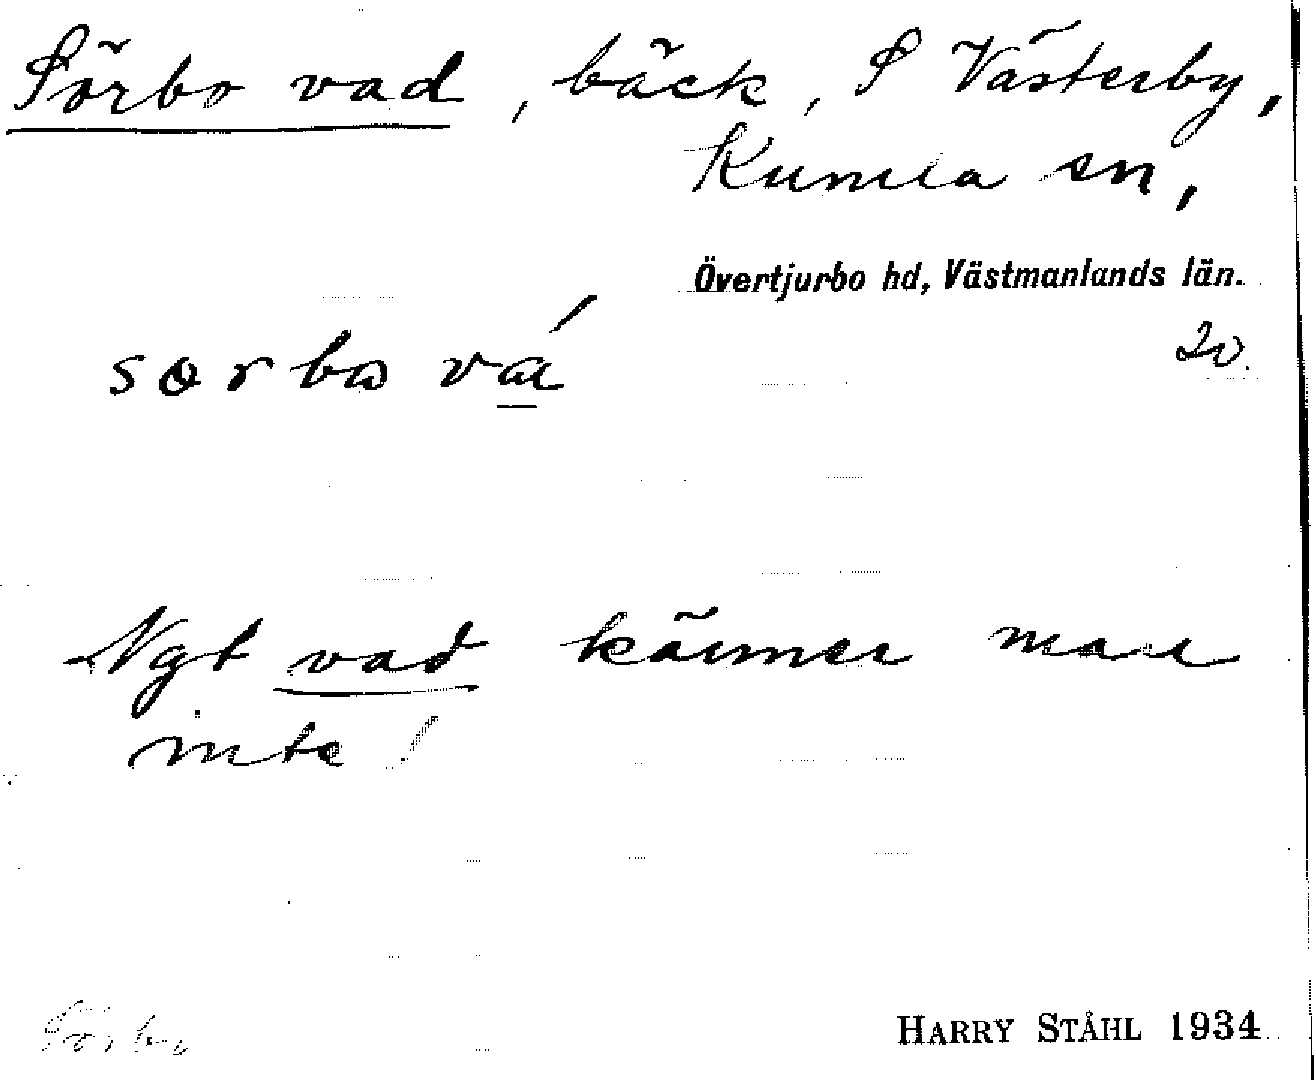 Sörbo vad, bäck, S Västerby,
Kumla sn,
Övertjurbo hd, Västmanlands län.
20.
sorbo vá
Ngt vad känner man
inte!
Sörbo
HARRY STÅHL 1934